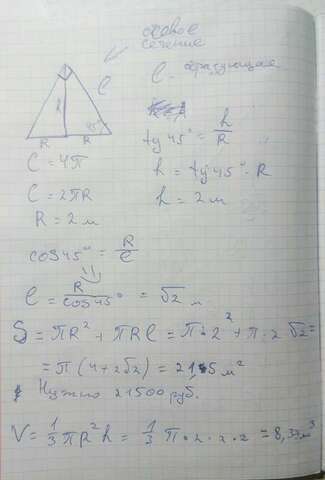 осевое
сечение
l - образующая
l
h
45°
R R
tg 45° = h/R
C = 4π
h = tg 45° · R
C = 2πR
h = 2 м
R = 2 м
cos 45° = R/l
l = R/cos 45° = √2 м
S = πR² + πRl = π·2² + π·2√2 =
= π(4+2√2) = 21,5 м²
Нужно 21500 руб.
V = 1/3 πR²h = 1/3 π·2·2·2 = 8,37 м³